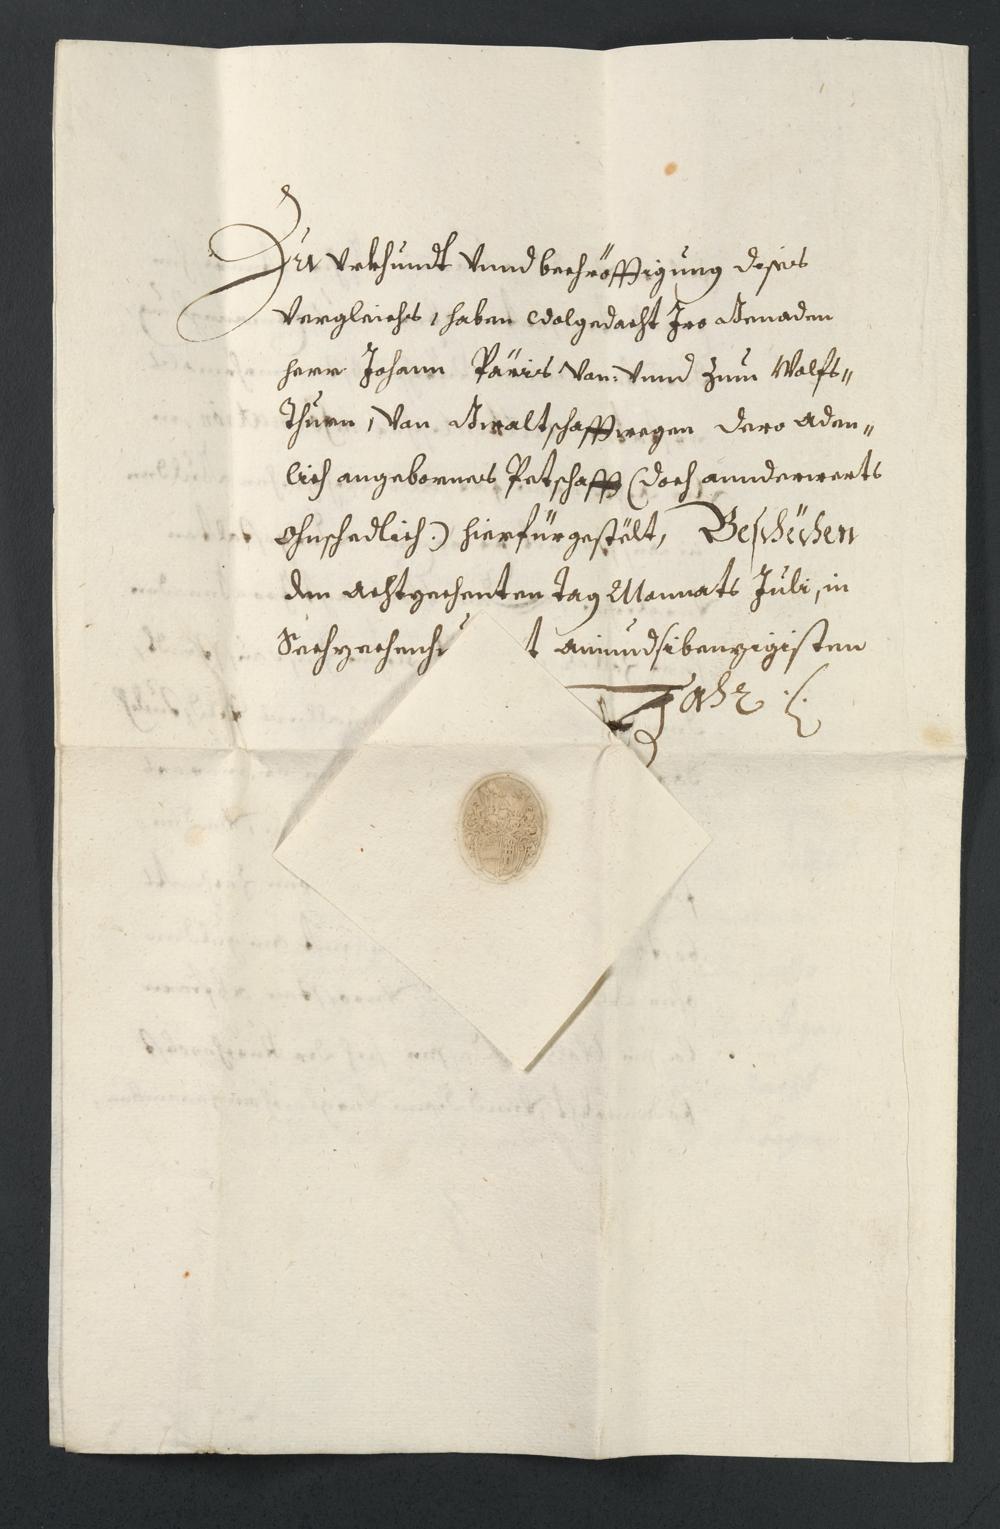 Zu Vrkhundt Vnnd bekröfftigung dises
Vergleichs, haben wolgedacht Iro Genaden
herr Johann Päris von: vnnd zum Wolfs„
Thurn, von Gwaltschafft wegen dero aden„
lich angebornes Petschafft (doch annderwerts
ohnschedlich:) hierfürgestölt, Beschechen
den achtzechenten tag Monnats Juli, in
Sechzechenh t ainundsibenzigisten
Jahr